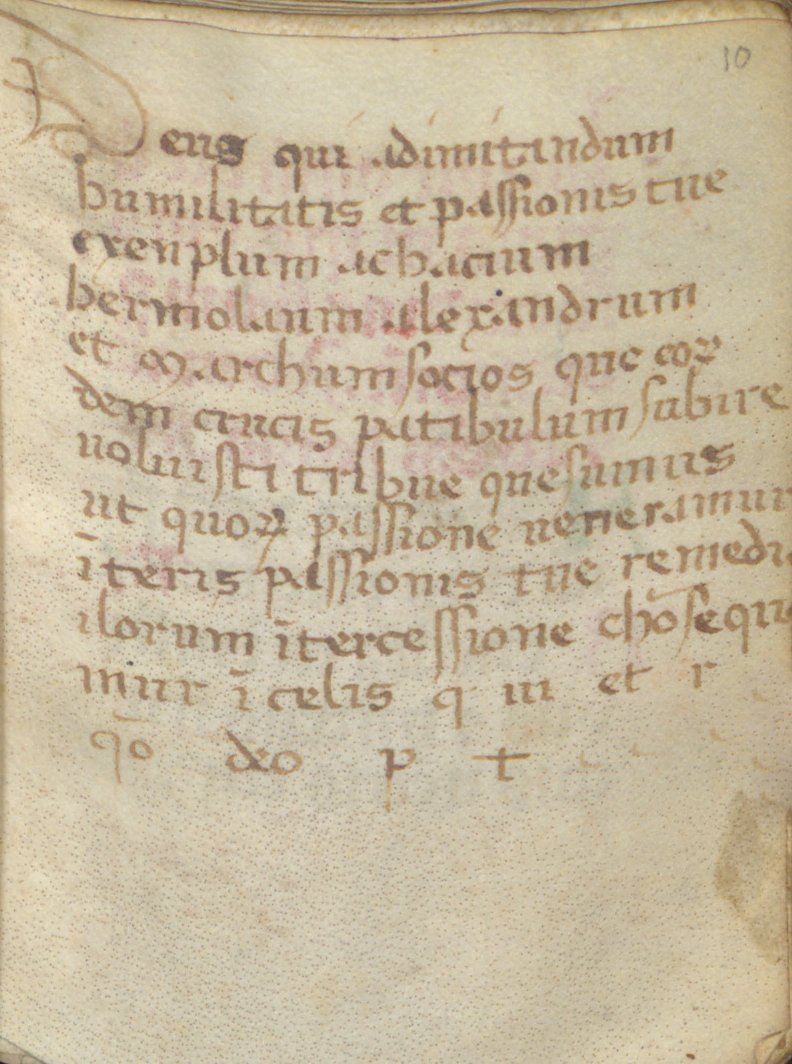 10
Deus qui adimitandum
humilitatis et passionis tue
exenplum achacium
hermolaum alexandrum
et Marchum socios que eoꝝ
dem crucis patibulum subire
uoluisti tribue quesumus
ut quoꝝ passione ueneramur
īteris passionis tue remedi
ilorum ītercessione cħo sequa
mur ī celis q ui et r
qō deo p +